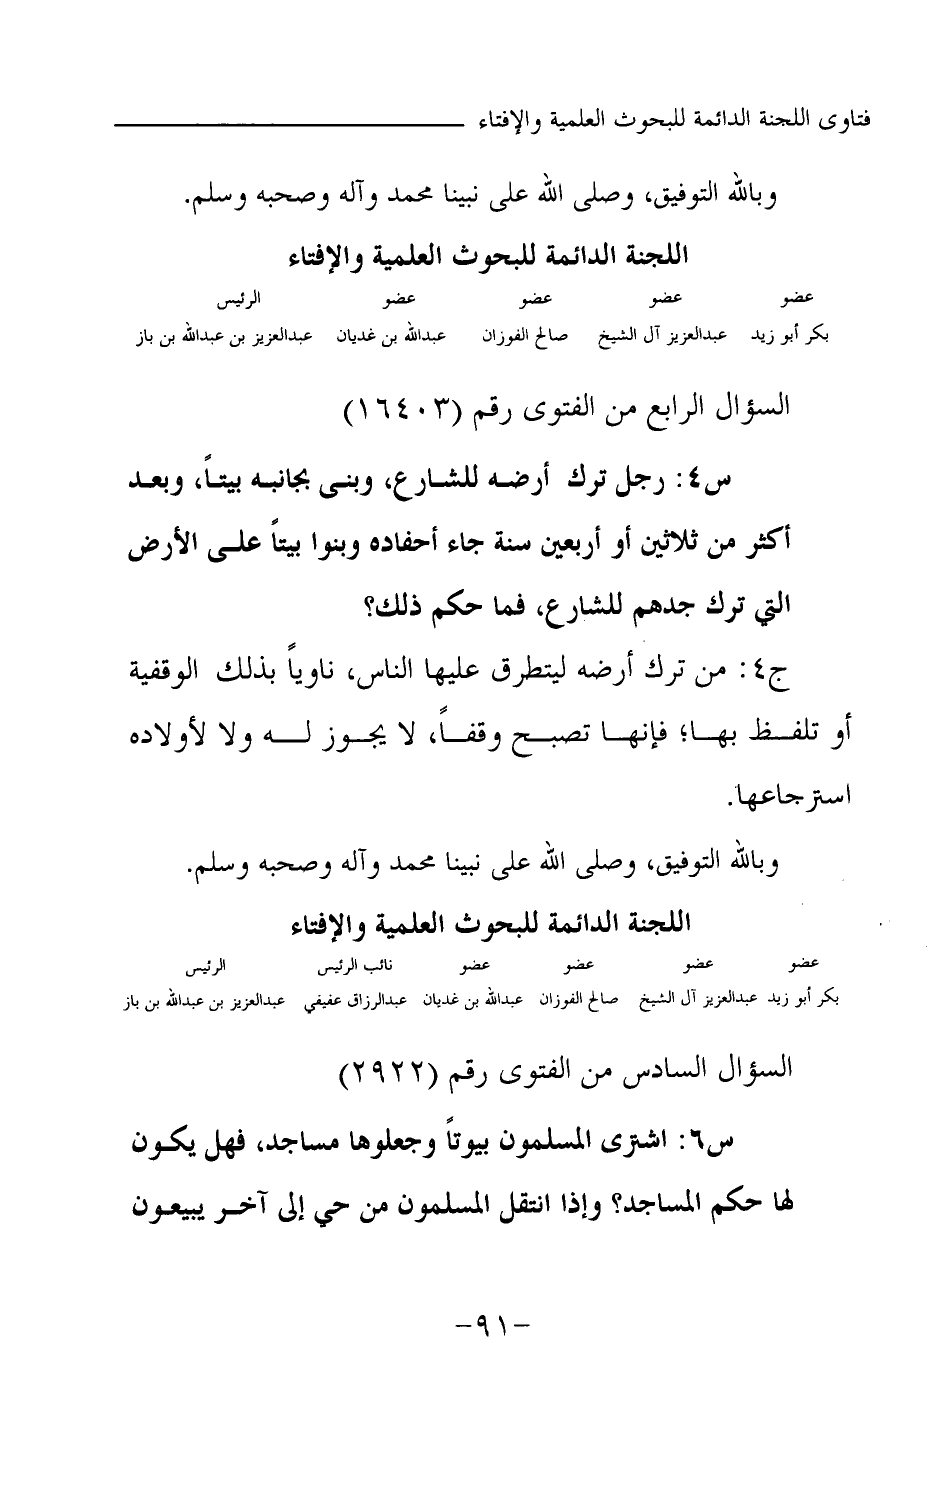 فتاوى اللجنة الدائمة للبحوث العلمية والإفتاء
وبالله التوفيق، وصلى الله على نبينا محمد وآله وصحبه وسلم.
اللجنة الدائمة للبحوث العلمية والإفتاء
عضو عضو عضو عضو الرئيس
بكر أبو زيد عبدالعزيز آل الشيخ صالح الفوزان عبدالله بن غديان عبدالعزيز بن عبدالله بن باز
السؤال الرابع من الفتوى رقم (١٦٤٠٣)
س٤: رجل ترك أرضه للشارع، وبنى بجانبه بيتاً، وبعد
أكثر من ثلاثين أو أربعين سنة جاء أحفاده وبنوا بيتاً على الأرض
التي ترك جدهم للشارع، فما حكم ذلك؟
ج٤: من ترك أرضه ليتطرق عليها الناس، ناوياً بذلك الوقفية
أو تلفظ بها؛ فإنها تصبح وقفاً، لا يجوز له ولا لأولاده
استرجاعها.
وبالله التوفيق، وصلى الله على نبينا محمد وآله وصحبه وسلم.
اللجنة الدائمة للبحوث العلمية والإفتاء
عضو عضو عضو عضو نائب الرئيس الرئيس
بكر أبو زيد عبدالعزيز آل الشيخ صالح الفوزان عبدالله بن غديان عبدالرزاق عفيفي عبدالعزيز بن عبدالله بن باز
السؤال السادس من الفتوى رقم (٢٩٢٢)
س٦: اشترى المسلمون بيوتاً وجعلوها مساجد، فهل يكون
لها حكم المساجد؟ وإذا انتقل المسلمون من حي إلى آخر يبيعون
-٩١-